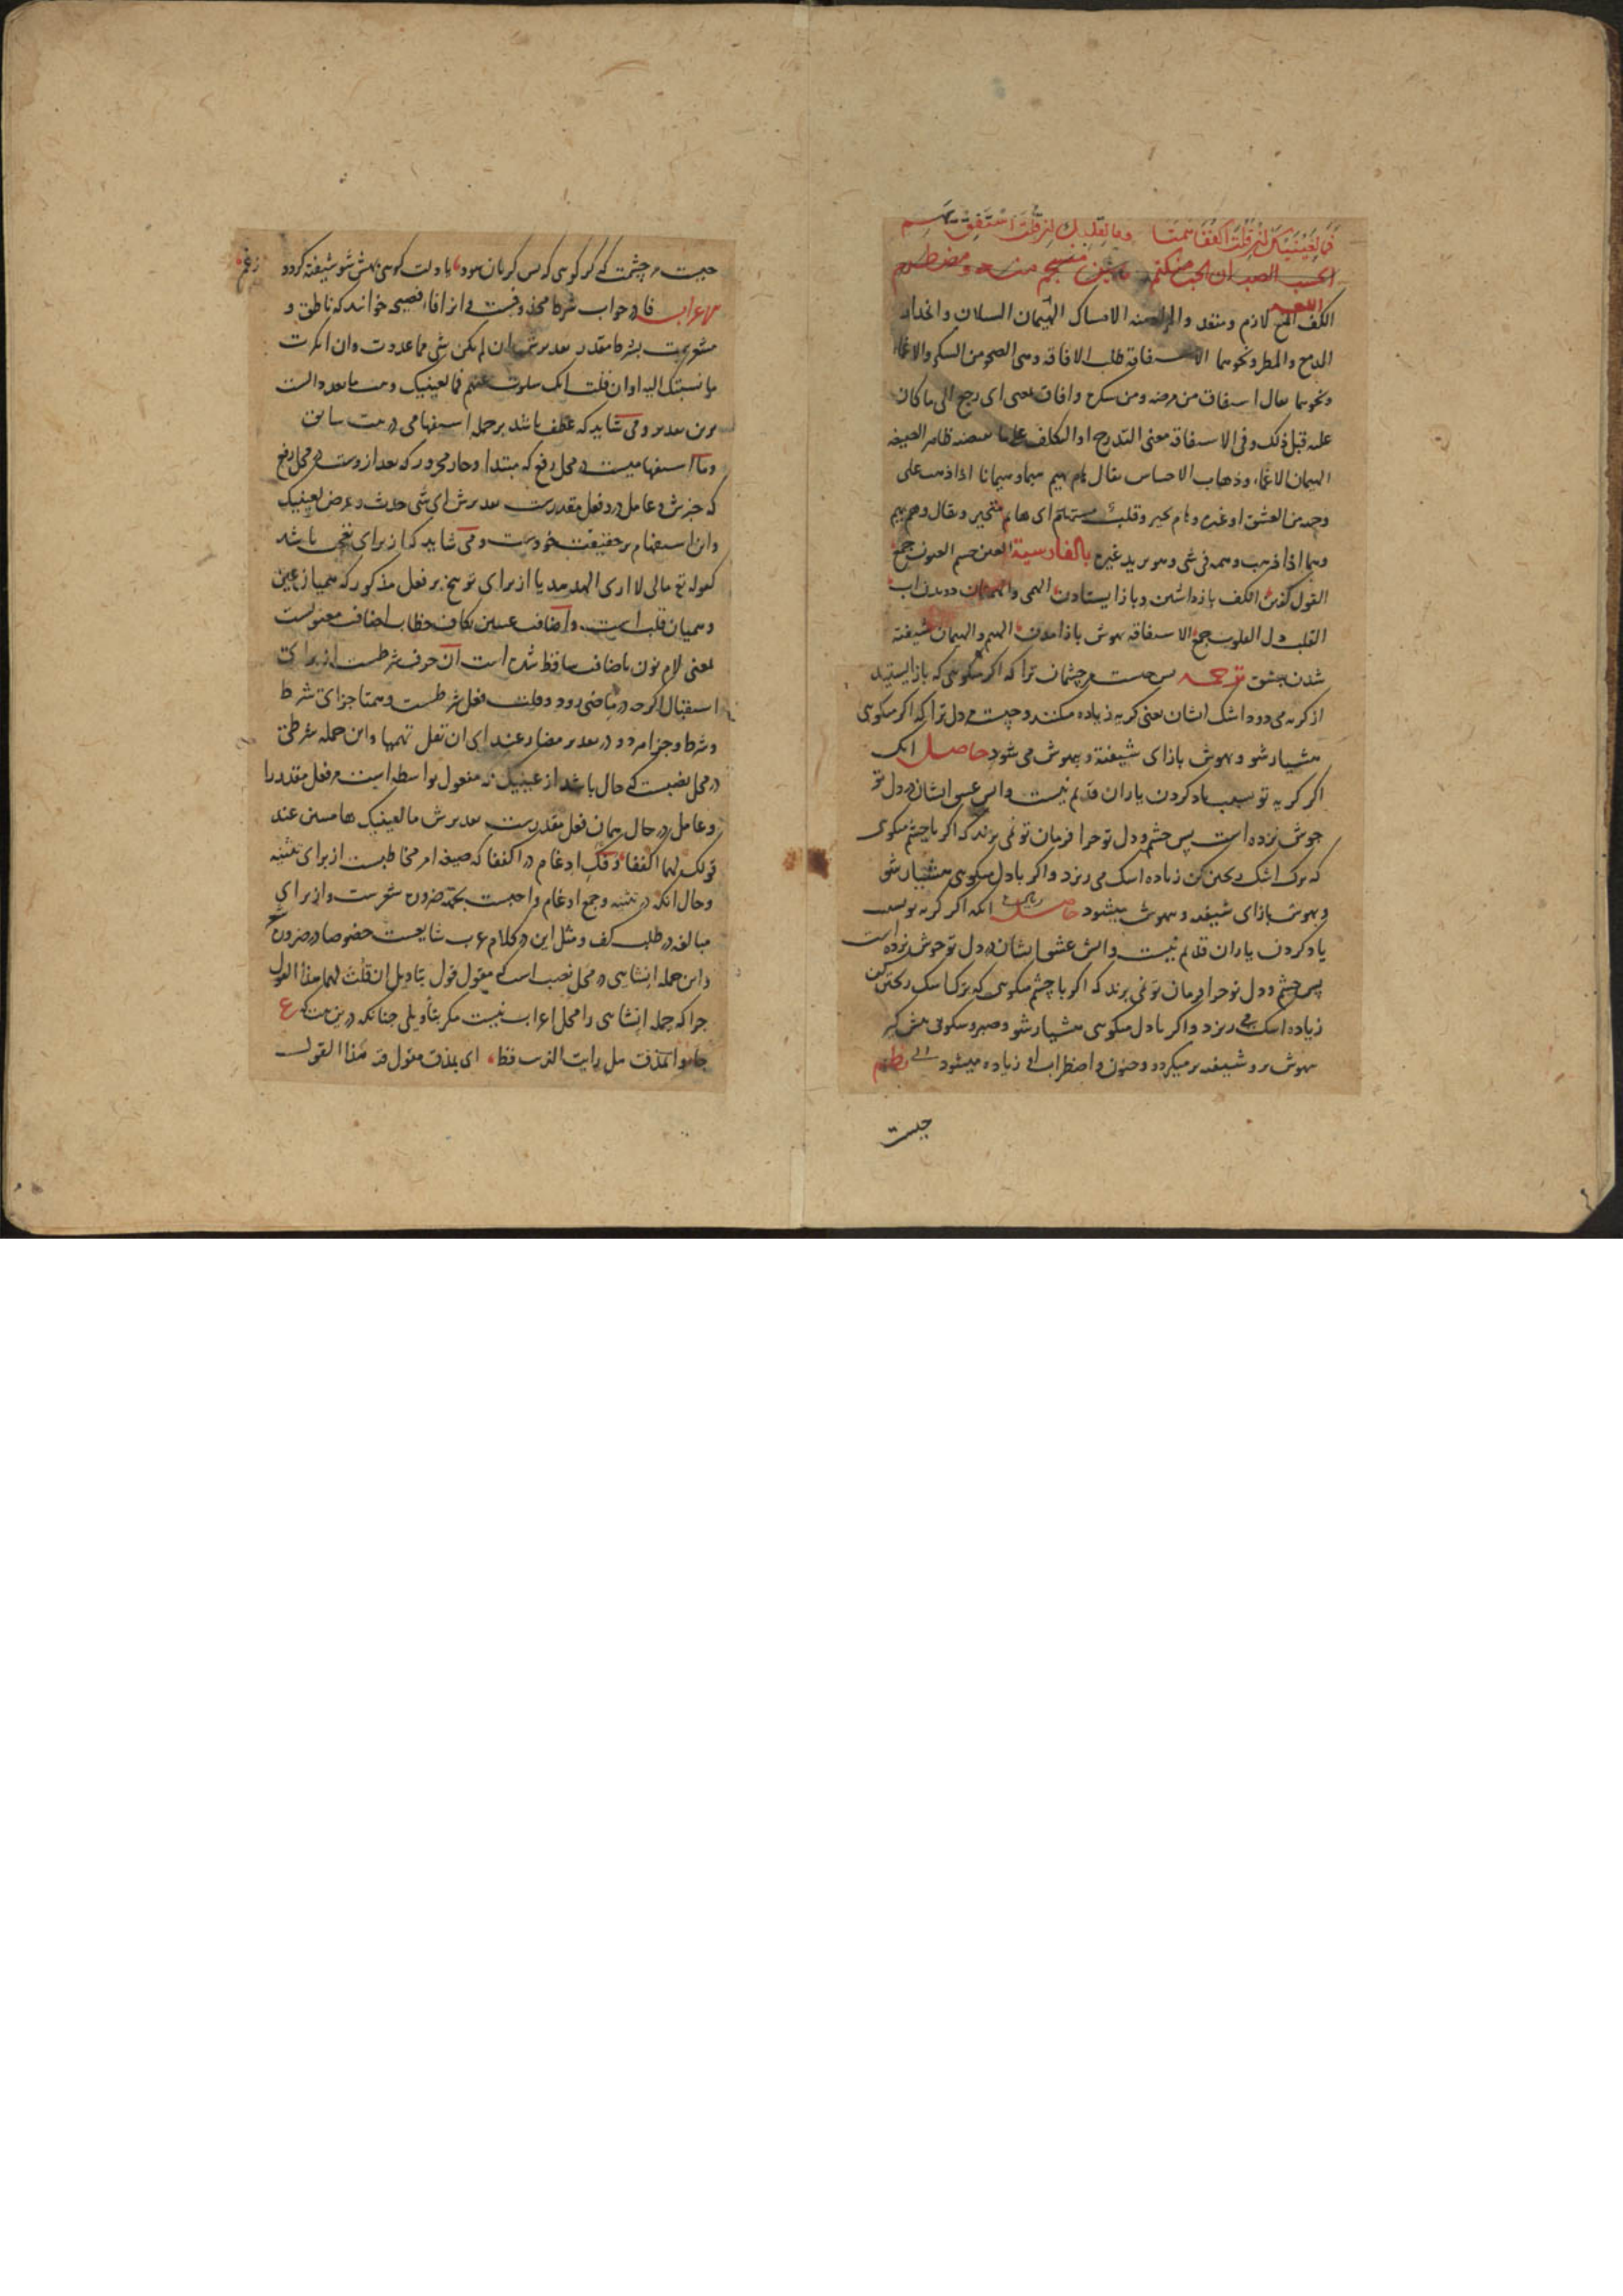 فما لعینیک ان قلت اکففا همتا وما لقلبک ان قلت استفق یهم
ایحسب الصب ان الحب منکتم ما بین منسجم منه ومضطرم
اللغه
الکف المنع لازم و متعد والمراد منه الامساک الهیمان السیلان وانحدار
الدمع والمطر ونحوهما الاستفاقة طلب الافاقه وهی الصحو من السکر والاغماء
ونحوهما یقال استفاق من مرضه ومن سکره وافاق بمعنی ای رجع الی ما کان
علیه قبل ذلک وفی الاستفاقة معنی التدرج او التکلف علی ما یقتضیه ظاهر الصیغه
الهیمان الاغماء وذهاب الاحساس یقال هام یهیم هیما وهیمانا اذا ذهب علی
وجهه من العشق او غیره وهام تحیر وقلب مستهام ای هایم متحیر ویقال وهم یهم
وهما اذا ذهب وهمه فی شی وهو یرید غیره بالفارسیة العین چشم العیون جمع
القول گفتن الکف بازداشتن و باز ایستادن الهمی والهمیان دویدن آب
القلب دل القلوب جمع الاستفاقه بهوش باز آمدن الهیم والهیمان شیفته
شدن بعشق ترجمه پس چیست مر چشمان ترا که اگر میکویی که باز ایستید
از کریه می دود اشک ایشان یعنی کریه زیاده میکنند و چیست مر دل ترا که اکر میکویی
هشیار شو و بهوش باز ای شیفته و بیهوش می شود حاصل انک
اکر کریه تو بسبب یاد کردن یاران قدیم نیست و آتش عشق ایشان در دل تو
جوش نزده است پس چشم و دل تو چرا فرمان تو نمی برند که اکر با چشم میکویی
که ترک اشک ریختن کن زیاده اشک می ریزد و اکر با دل میکویی هشیار شو
و بهوش باز ای شیفته و بیهوش میشود حاصل دیگر آنکه اکر کریه تو بسبب
یاد کردن یاران قدیم نیست و آتش عشق ایشان در دل تو جوش نزده است
پس چشم و دل تو چرا فرمان تو نمی برند که اکر با چشم میکویی که ترک اشک ریختن کن
زیاده اشک می ریزد و اکر با دل میکویی هشیار شو و صبر و سکونی پیش گیر
بیهوش تر و شیفته تر میکردد و حزن و اضطراب او زیاده میشود نظم
چیست
چیست مر چشمت که کر کویی که بس کریان شود یا دلت کویی بهش شو شیفته کردد ز غم
اعراب فا در جواب شرط محذوفست و این فا را فصیحه خوانند که ناطق و
مشعرست بشرط مقدر تقدیرش ان لم یکن شی مما عددت وان انکرت
ما نسبتک الیه او ان قلت انک سلوت عنهم فما لعینیک
برین تقدیر و می شاید که عطف باشد بر جمله استفهامی در بیت سابق
وما استفهامیست در محل رفع که مبتدا و جار مجرور که بعد ازوست در محل رفع
که خبرش و عامل درو فعل مقدرست تقدیرش ای شی حدث وعرض لعینیک
و این استفهام بر حقیقت خودست و می شاید که از برای تعجب باشد
کقوله تع مالی لا اری الهدهد یا از برای توبیخ بر فعل مذکور که همیان عین
و هیمان قلب است و اضافت عینین بکاف خطاب اضافت معنویست
بمعنی لام نون باضافت ساقط شده است ان حرف شرطست از برای
استقبال اکرچه در ماضی رود و قلت فعل شرطست و همتا جزای شرط
و شرط و جزا هر دو در تقدیر مضارعند ای ان تقل تهمیا و این جمله شرطی
در محل نصبست که حال باشد از عینیک که مفعول بواسطه است مر فعل مقدر را
و عامل در حال همان فعل مقدرست تقدیرش ما لعینیک هامیتین عند
قولک لهما اکففا و فک ادغام در اکففا که صیغه امر مخاطبست از برای تثنیه
و حال آنکه در تثنیه و جمع ادغام واجبست بجهة ضرورت شعرست و از برای
مبالغه در طلب کف و مثل این در کلام عرب شایعست خصوصا در ضرورت شعر
و این جمله انشایی در محل نصب است که مقول قول بتاویل ان قلت لهما هذا القول
چرا که جمله انشایی را محل اعراب نیست مکر بتأویلی چنانکه درین بیت که ع
جاءوا بمذق هل رایت الذئب قط ای بمذق مقول فیه هذا القول